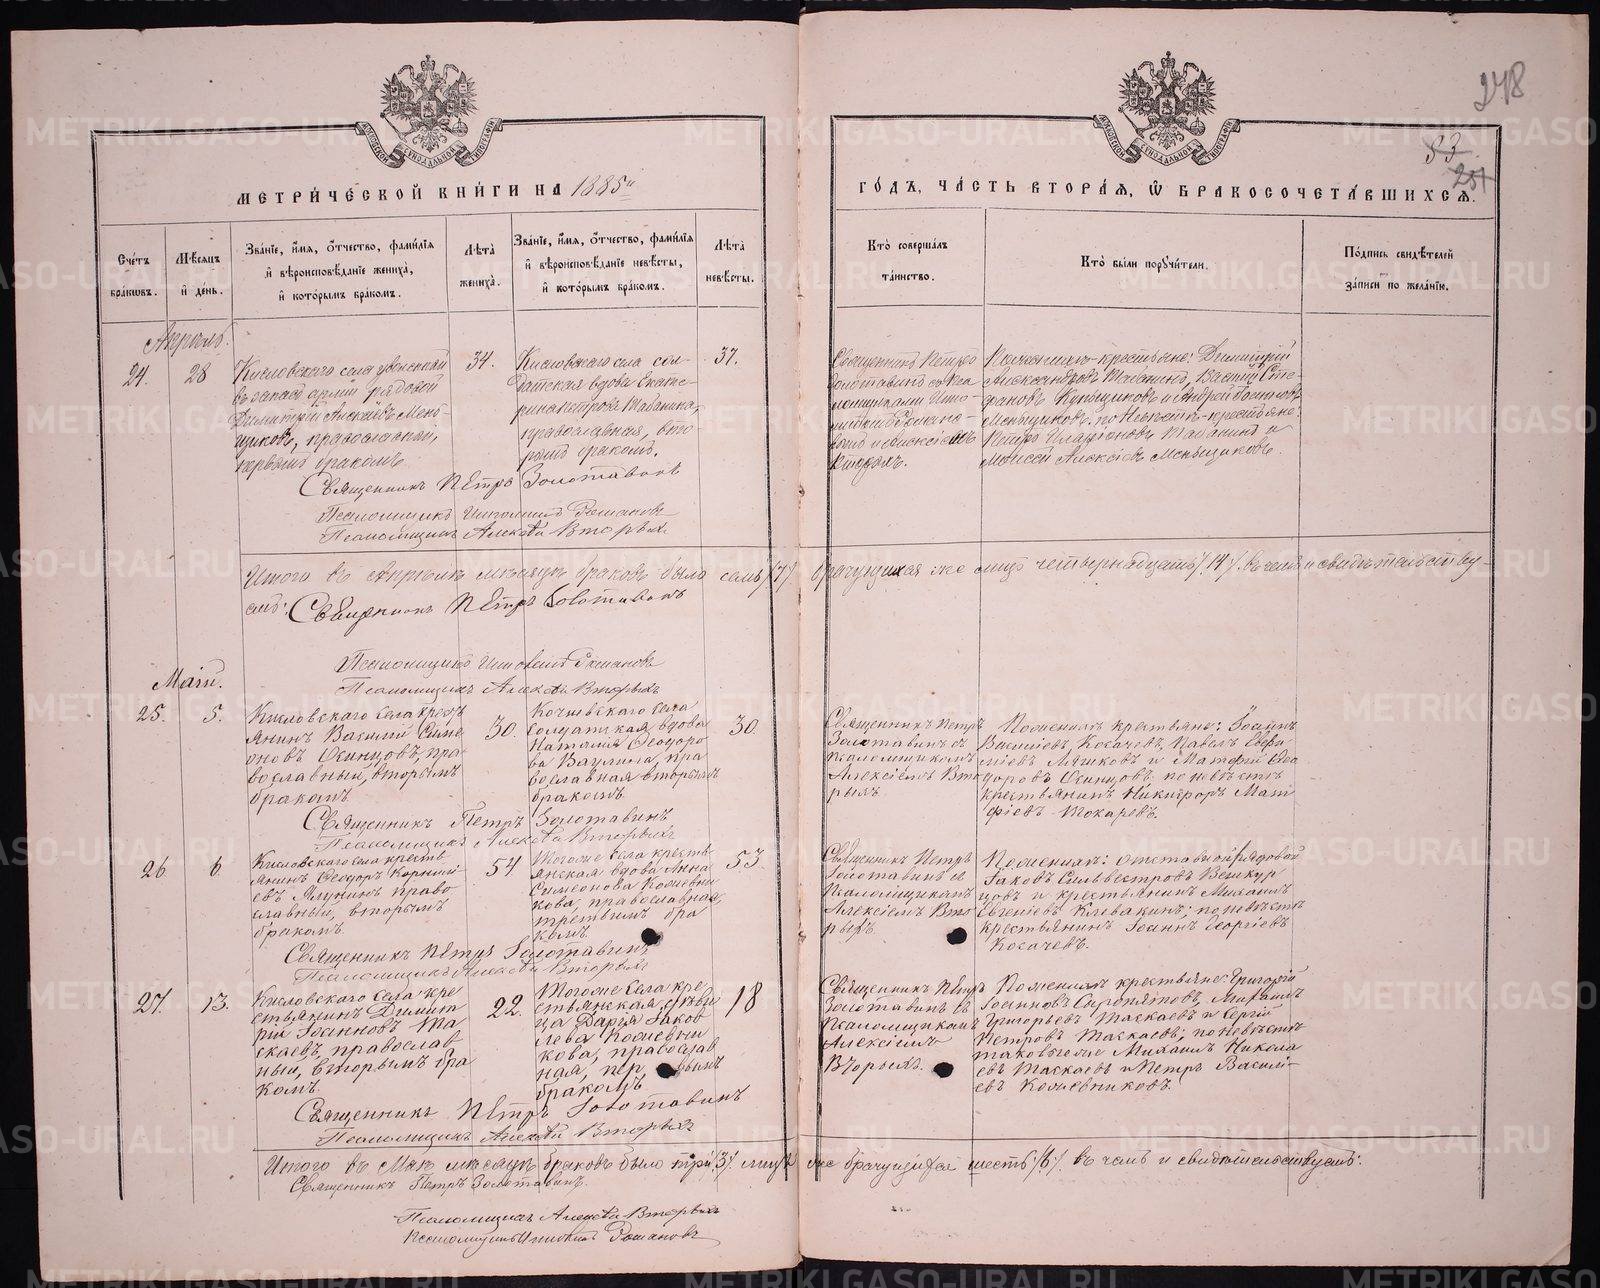 248
53
251
МЕТРИЧЕСКОЙ КНИГИ НА 1885й
ГОДЪ, ЧАСТЬ ВТОРАЯ, Ѿ БРАКОСОЧЕТАВШИХСЯ.
Счетъ браковъ.
Мѣсяцъ и день.
Званіе, имя, отчество, фамилія и вѣроисповѣданіе жениха, и которымъ бракомъ.
Лѣта жениха.
Званіе, имя, отчество, фамилія и вѣроисповѣданіе невѣсты, и которымъ бракомъ.
Лѣта невѣсты.
Кто совершалъ таинство.
Кто были поручители.
Подпись свидѣтелей записи по желанію.
Апрѣль.
24.
28
Кисловскаго села уволенный
въ запасъ арміи рядовой
Димитрій Алексѣевъ Мень-
щиковъ, православный,
первымъ бракомъ.
34.
Кисловскаго села сол-
датская вдова Екате-
рина Петрова Табанина,
православная, вто-
рымъ бракомъ.
37.
Священникъ Петръ
Золотавинъ съ пса-
ломщиками
Поженихѣ крестьяне: Димитрій
Александровъ Табанинъ, Василій Сте-
фановъ Купцовъ и Андрей
Меньщиковъ, по невѣстѣ крестьяне:
Петръ Иларіоновъ Табанинъ и
Моисей Алексѣевъ Меньщиковъ.
Священникъ Петръ Золотавинъ
Псаломщикъ Ипполитъ Романовъ
Псаломщикъ Алексѣй Вторыхъ
Итого въ Апрѣлѣ мѣсяцѣ браковъ было семь /7/ брачущихся же лицъ четырнадцать /14/. въ чемъ и свидѣтельству-
емъ: Священникъ Петръ Золотавинъ
Псаломщикъ Ипполитъ Романовъ
Псаломщикъ Алексѣй Вторыхъ
Май.
25.
5.
Кисловскаго села кресть
янинъ Василій Симе
оновъ Осинцовъ, пра
вославный, вторымъ
бракомъ.
30.
Кочневскаго села
солдатская вдова
Наталія Ѳеодоро
ва Ваулина, пра
вославная вторымъ
бракомъ.
30.
Священникъ Петръ
Золотавинъ съ
псаломщикомъ
Алексѣемъ Вто
рыхъ.
Поженихѣ крестьяне: Іоаннъ
Василіевъ Косачевъ, Павелъ Евфи
міевъ Лягковъ и Матфій Ѳео
доровъ Осинцовъ, по невѣстѣ
крестьянинъ Никифоръ Мат
фіевъ Токаревъ.
Священникъ Петръ Золотавинъ
Псаломщикъ Алексѣй Вторыхъ
26
6
Кисловскаго села кресть
янинъ Ѳеодоръ Корнилі
евъ Ялунинъ право
славный, вторымъ
бракомъ.
54
Тогоже села кресть
янская вдова Анна
Симеонова Кожевни
кова, православная,
третьимъ бра
комъ.
53
Священникъ Петръ
Золотавинъ съ
псаломщикомъ
Алексѣемъ Вто
рыхъ.
Поженихѣ: отставной рядовой
Іаковъ Сильвестровъ Вешкур
цовъ и крестьянинъ Михаилъ
Евгеніевъ Клевакинъ; по невѣстѣ
крестьянинъ Іоаннъ Георгіевъ
Косачевъ.
Священникъ Петръ Золотавинъ
Псаломщикъ Алексѣй Вторыхъ
27.
13.
Кисловскаго села кре
стьянинъ Димит
рій Іоанновъ Та
скаевъ, православ
ный, вторымъ бра
комъ.
22.
Тогоже села кре
стьянская дѣви
ца Дарія Іаков
лева Кожевни
кова, православ
ная, пер вымъ
бракомъ
18
Священникъ Петръ
Золотавинъ съ
псаломщикомъ
Алексѣемъ
Вторыхъ.
Поженихѣ крестьяне: Григорій
Іоанновъ Сыропятовъ, Михаилъ
Григорьевъ Таскаевъ и Сергій
Петровъ Таскаевъ; по невѣстѣ
таковыеже Михаилъ Никола
евъ Таскаевъ и Петръ Василі-
евъ Кожевниковъ.
Священникъ Петръ Золотавинъ
Псаломщикъ Алексѣй Вторыхъ
Итого въ Маѣ мѣсяцѣ браковъ было три /3/ лицъ же брачущихся шесть /6/ въ чемъ и свидѣтельствуемъ:
Священникъ Петръ Золотавинъ.
Псаломщикъ Алексѣй Вторыхъ
Псаломщикъ Ипполитъ Романовъ
METRIKI.GASO-URAL.RU